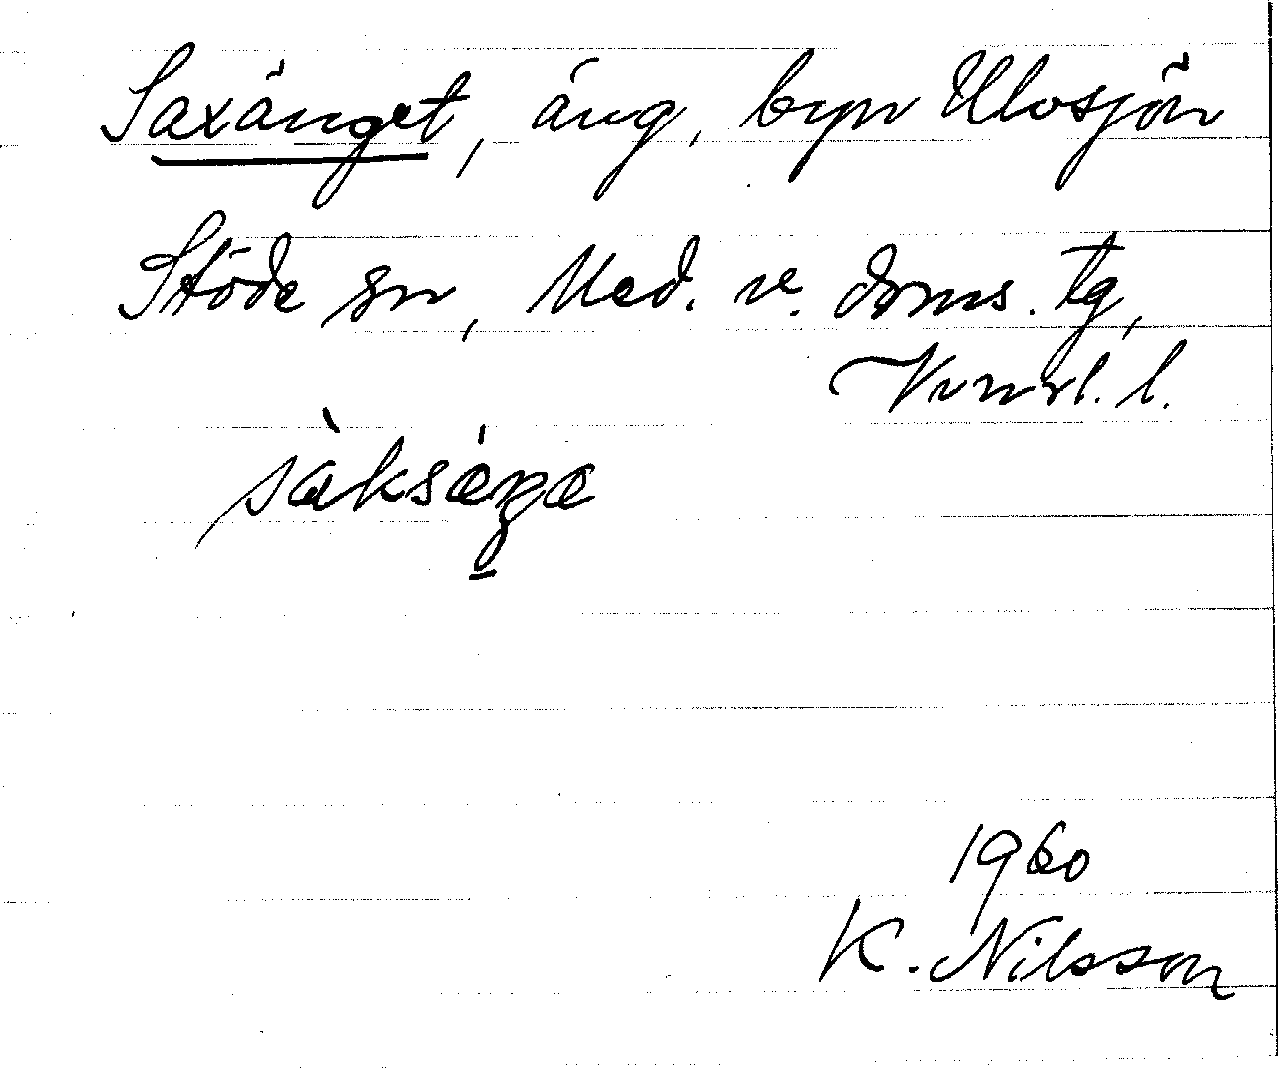 Saxänget, äng, byn Ulvsjön
Stöde sn, Med. v. doms. tg,
Vrnrl. l.
sàksǽŋæ
1960
K. Nilsson